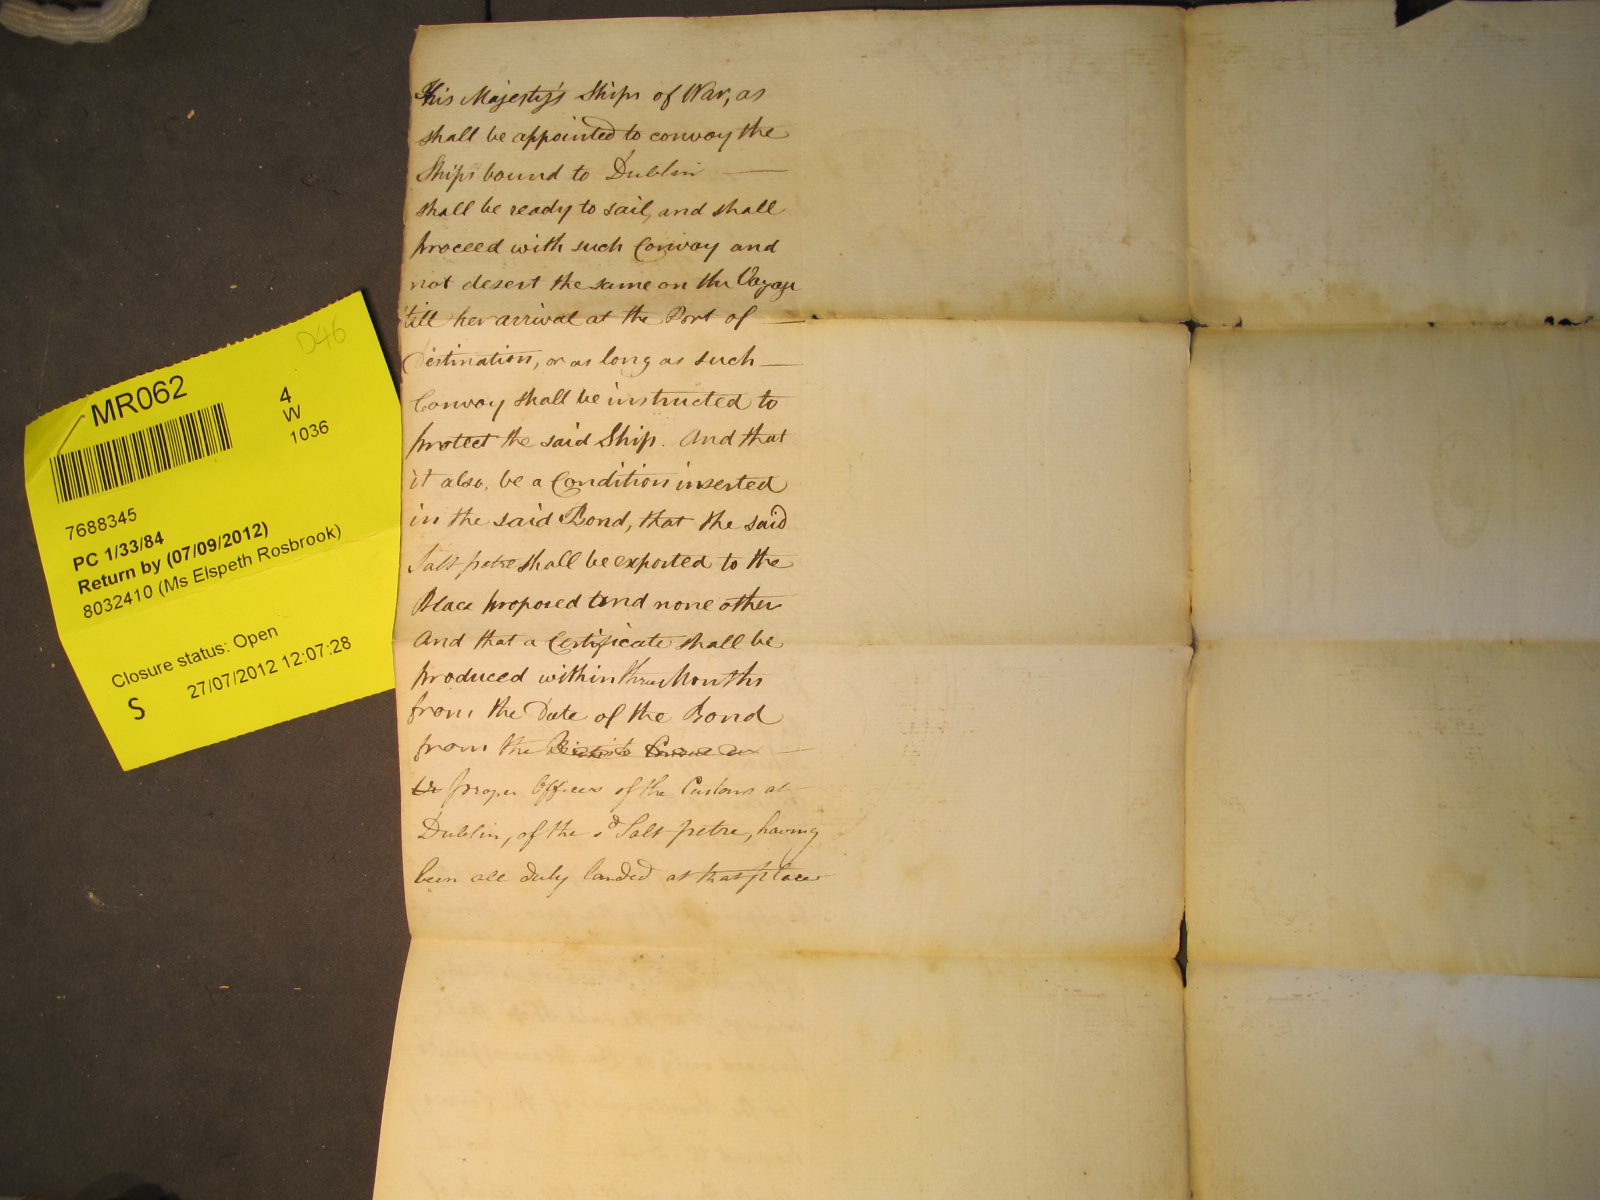 D46
MR062
4
W
1036
7688345
PC 1/33/84
Return by (07/09/2012)
8032410 (Ms Elspeth Rosbrook)
Closure status: Open
S 27/07/2012 12:07:28
His Majesty's Ships of War, as
shall be appointed to convoy the
Ships bound to Dublin
shall be ready to sail, and shall
proceed with such Convoy and
not desert the same on the Voyage
'till her arrival at the Port of
Destination, or as long as such
Convoy shall be instructed to
protect the said Ship. And that
it also, be a Condition inserted
in the said Bond, that the said
Salt petre shall be exported to the
Place proposed and none other
And that a Certificate shall be
produced within three Months
from the Date of the Bond
from the
proper Officers of the Customs at
Dublin, of the sd Salt petre, having
been all duly landed at that place